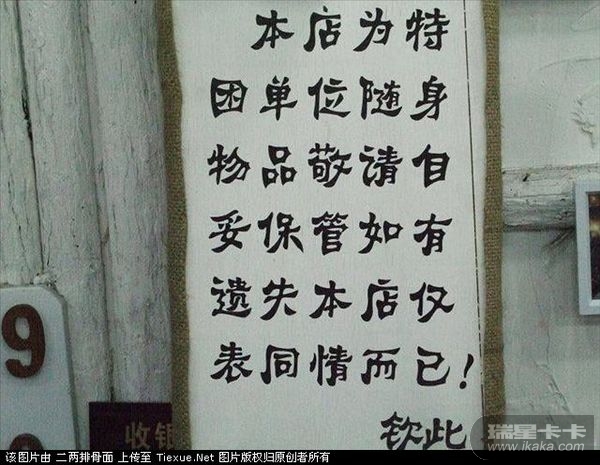 本店为特
困单位随身
物品敬请自
妥保管如有
遗失本店仅
表同情而已!
钦此
9
收银
瑞星卡卡
www.ikaka.com
该图片由 二两排骨面 上传至 Tiexue.Net 图片版权归原创者所有